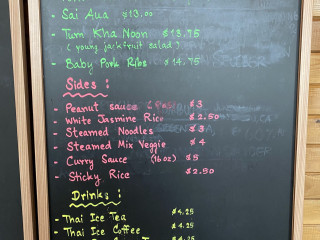 - Sai Aua $13.00
- Tum Kha Noon $13.75
(young jackfruit salad)
- Baby Pork Ribs $14.75
Sides :
- Peanut sauce $3
- White Jasmine Rice $2.50
- Steamed Noodles $3
- Steamed Mix Veggie $4
- Curry Sauce (16oz) $5
- Sticky Rice $2.50
Drinks :
- Thai Ice Tea $4.25
- Thai Ice Coffee $4.25